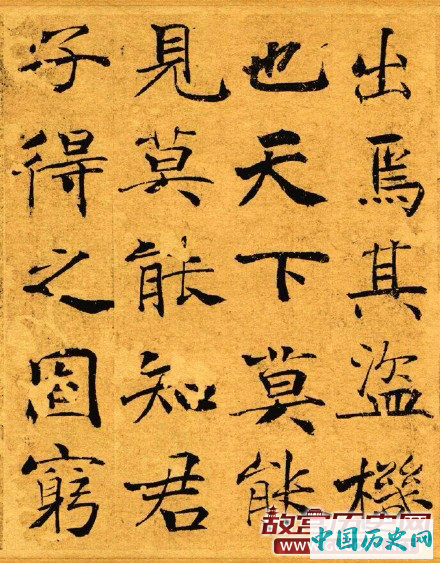 出焉其盜機
也天下莫能
見莫能知君
子得之固窮
故宫历史网
中国历史网